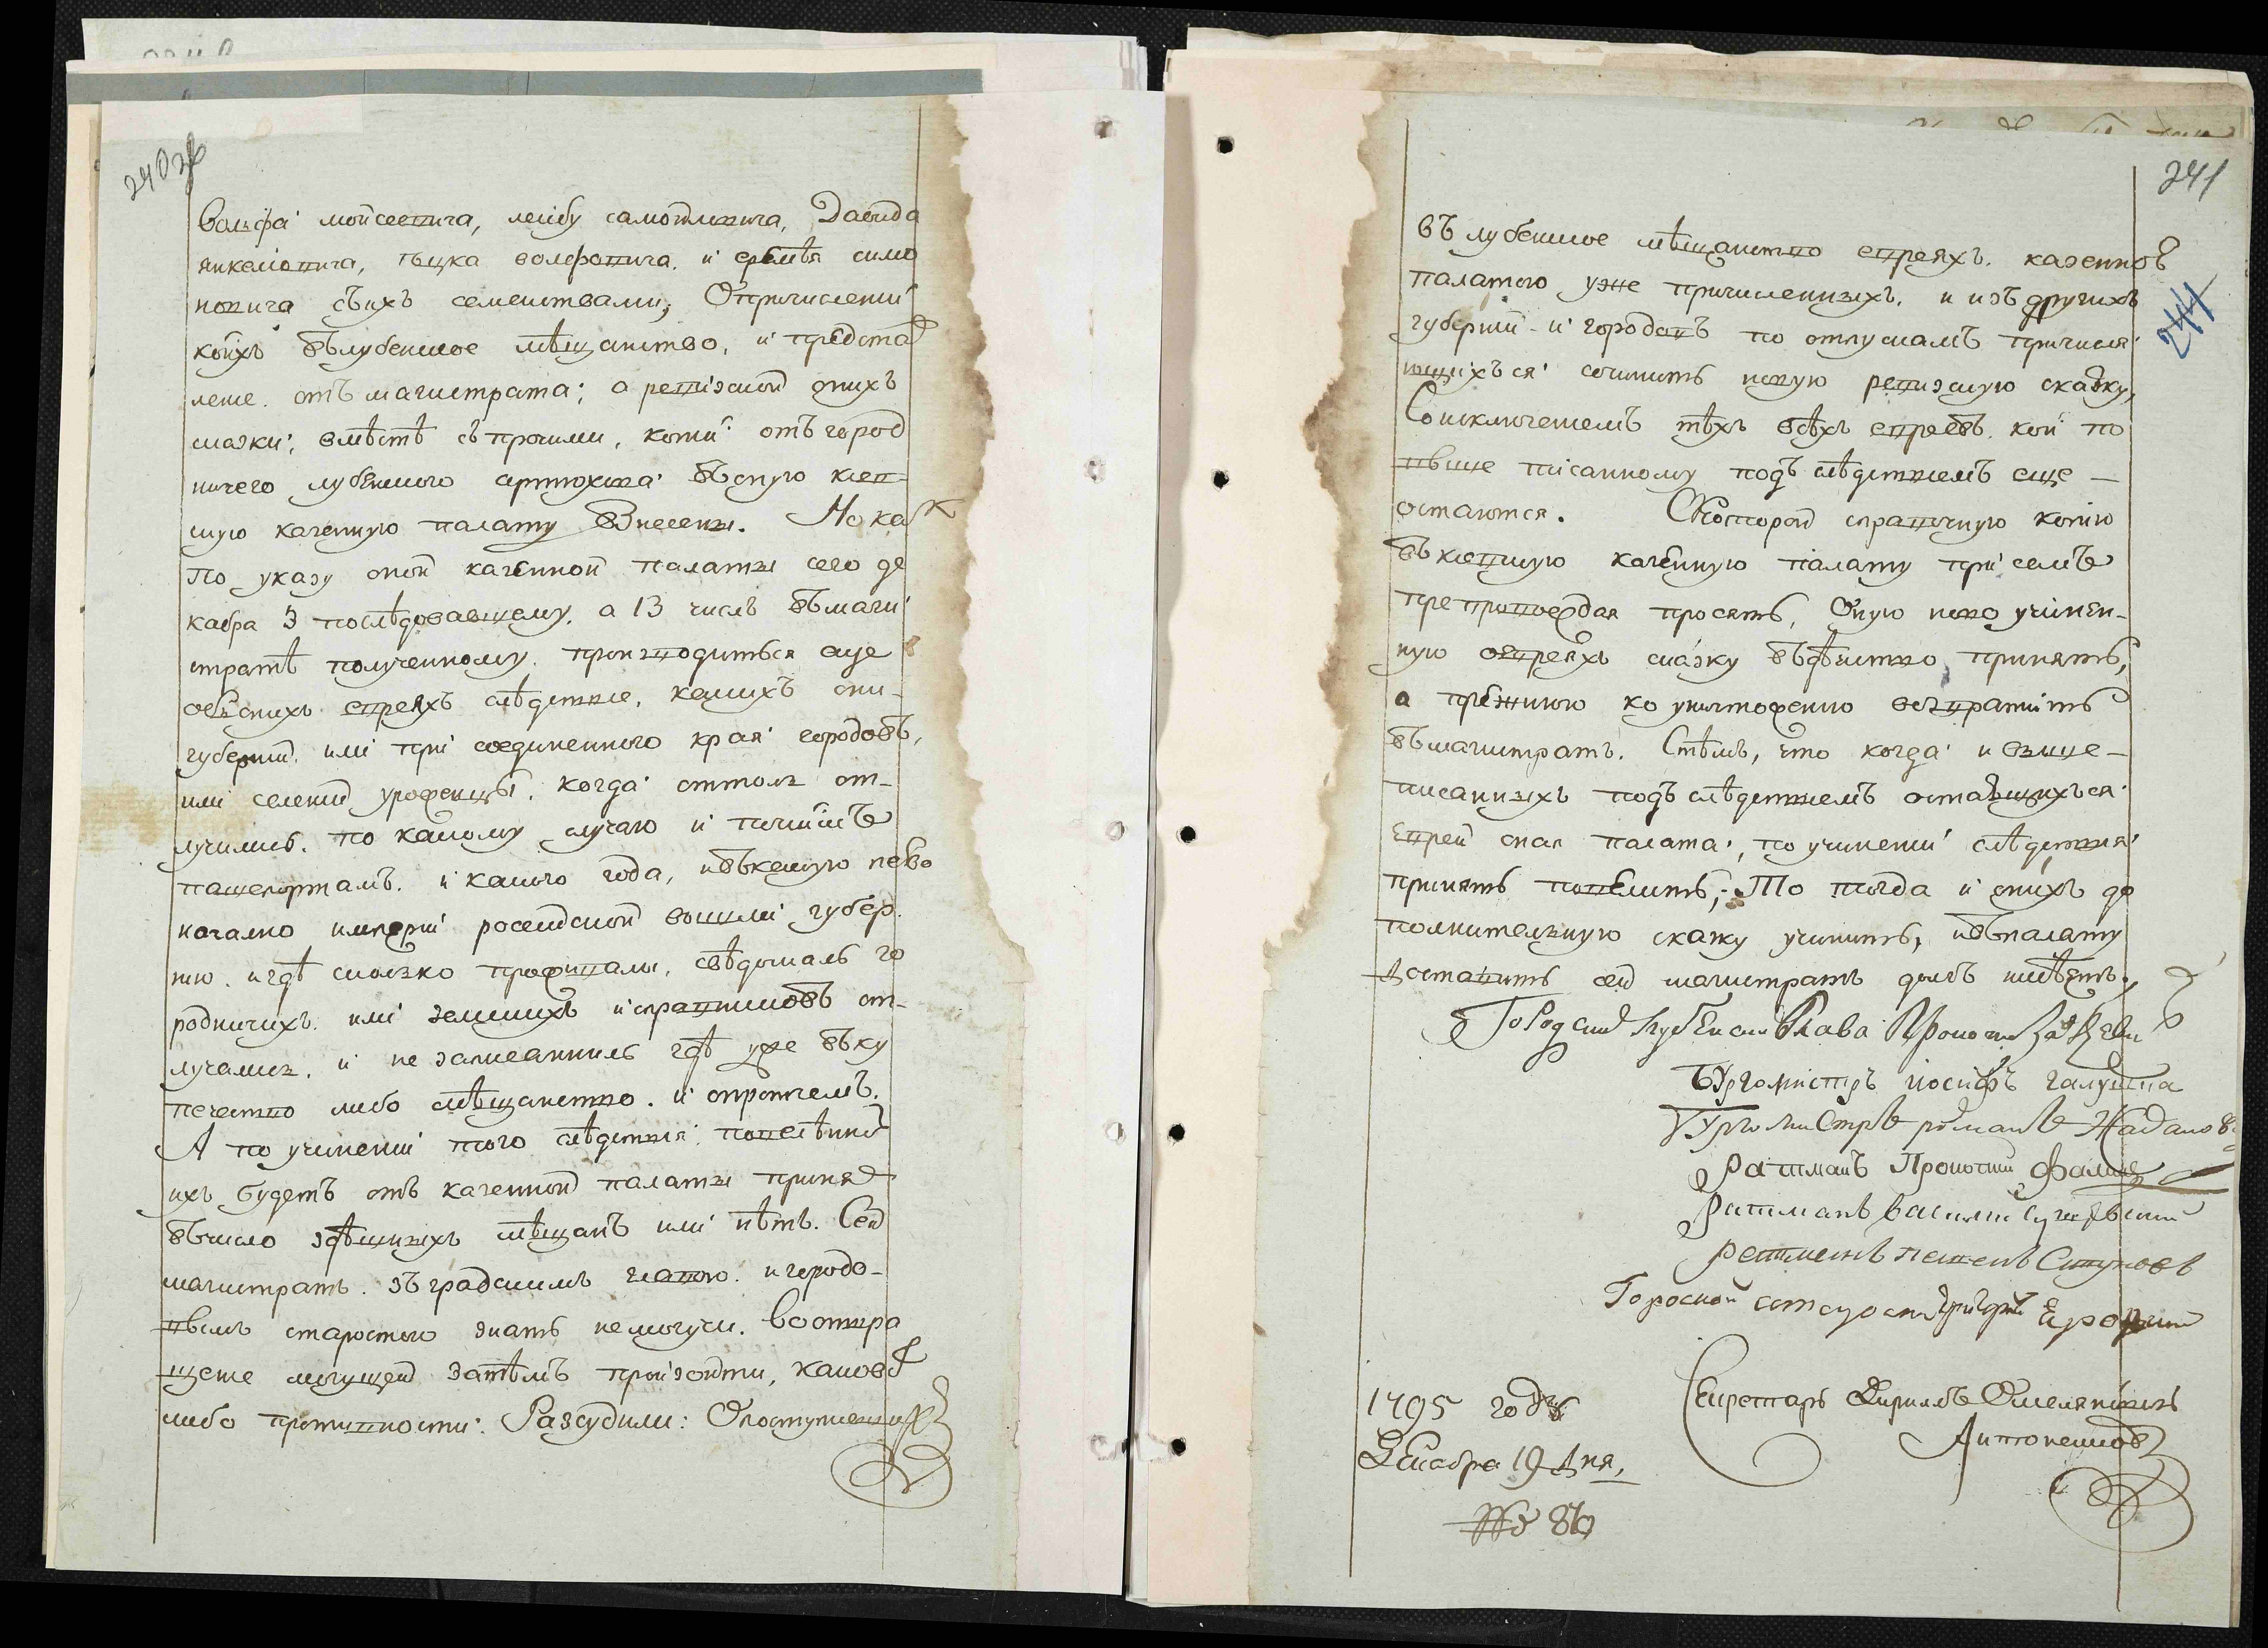 240 зв
Вольфа мойсеевича, лейбу самойловича, Давида
янкелювича, гыцка волфовича, и срблевя симо
новича съихъ семействами; Опричислении
коихъ вълубенское мѣщанство, и предста
леие отъ магистрата; а ревизской онихъ
сказки; вмѣстѣ съ прочими, копии отъ город
ничего лубенского въ оную киев-
скую казенную палату Внесены. Но какъ
По указу оной казенной палаты сего де
кабра 3 послѣдовавшему, а 13 числъ въмаги
стратъ полученному, производиться еще
обонихъ евреяхъ слѣдствие, какихъ они-
губерний, или при соединенного края городовъ,
или селений уроженцы, когда оттоль от-
лучились, по какому случаю и
пашепортамъ, и какого года, ивъкакую перво
начално империи российской вошли губер-
нию, и гдѣ сколко проживали, свѣдомаль го
родничихъ, или земскихъ исправниковъ от-
лучались, и не записанниль гдѣ уже въку
печество либо мѣщанство, и опротчемъ.
А по учинении того слѣдствия, повелѣнно
ихъ будетъ отъ казенной палаты принят
въчисло здѣшныхъ мѣщанъ или нѣтъ. Сей
магистратъ, зъ градскимъ главою, и городо-
вымъ старостою знать немогучи. Воотвра
щение могущей затѣмъ произойти, каковой
либо противности: Разсудили: Опоступивших
241
244
въ лубенское мѣщанство евреяхъ, казенною
палатою уже причисленныхъ, и изъ другихъ
губерний и городовъ по отпускамъ причисля
ющихъся сочинить новую ревизскую сказку,
Соисключениемъ тѣхъ всѣхъ евреевъ, кои по
выше писанному подъ слѣдствиемъ еще —
остаются. Скоторой справочную копию
въ киевскую казенную палату при семъ
препровождая просить, Оную ново учинен-
ную оевреяхъ сказку въдѣйство принять,
а прежнюю ко уничтожению возвратить
въмагистратъ. Стѣмъ, что когда и выше-
писанныхъ подъ слѣдствиемъ оставшихъся
Еврей оная палата, по учинении слѣдствия
принять повелить; То тогда и онихъ до
полнительную сказку учинить, ивъпалату
доставить сей магистратъ долгъ имѣетъ.
Городский Лубенский Глава
Бургомистръ иосифъ галушка
Бургомистръ романъ
Ратманъ Прокопий
Ратманъ василий
ратманъ
Городской григорий
Секретарь Кирилъ Омеляновичъ
Антоненков
1795 году
Декабря 19 дня,
№